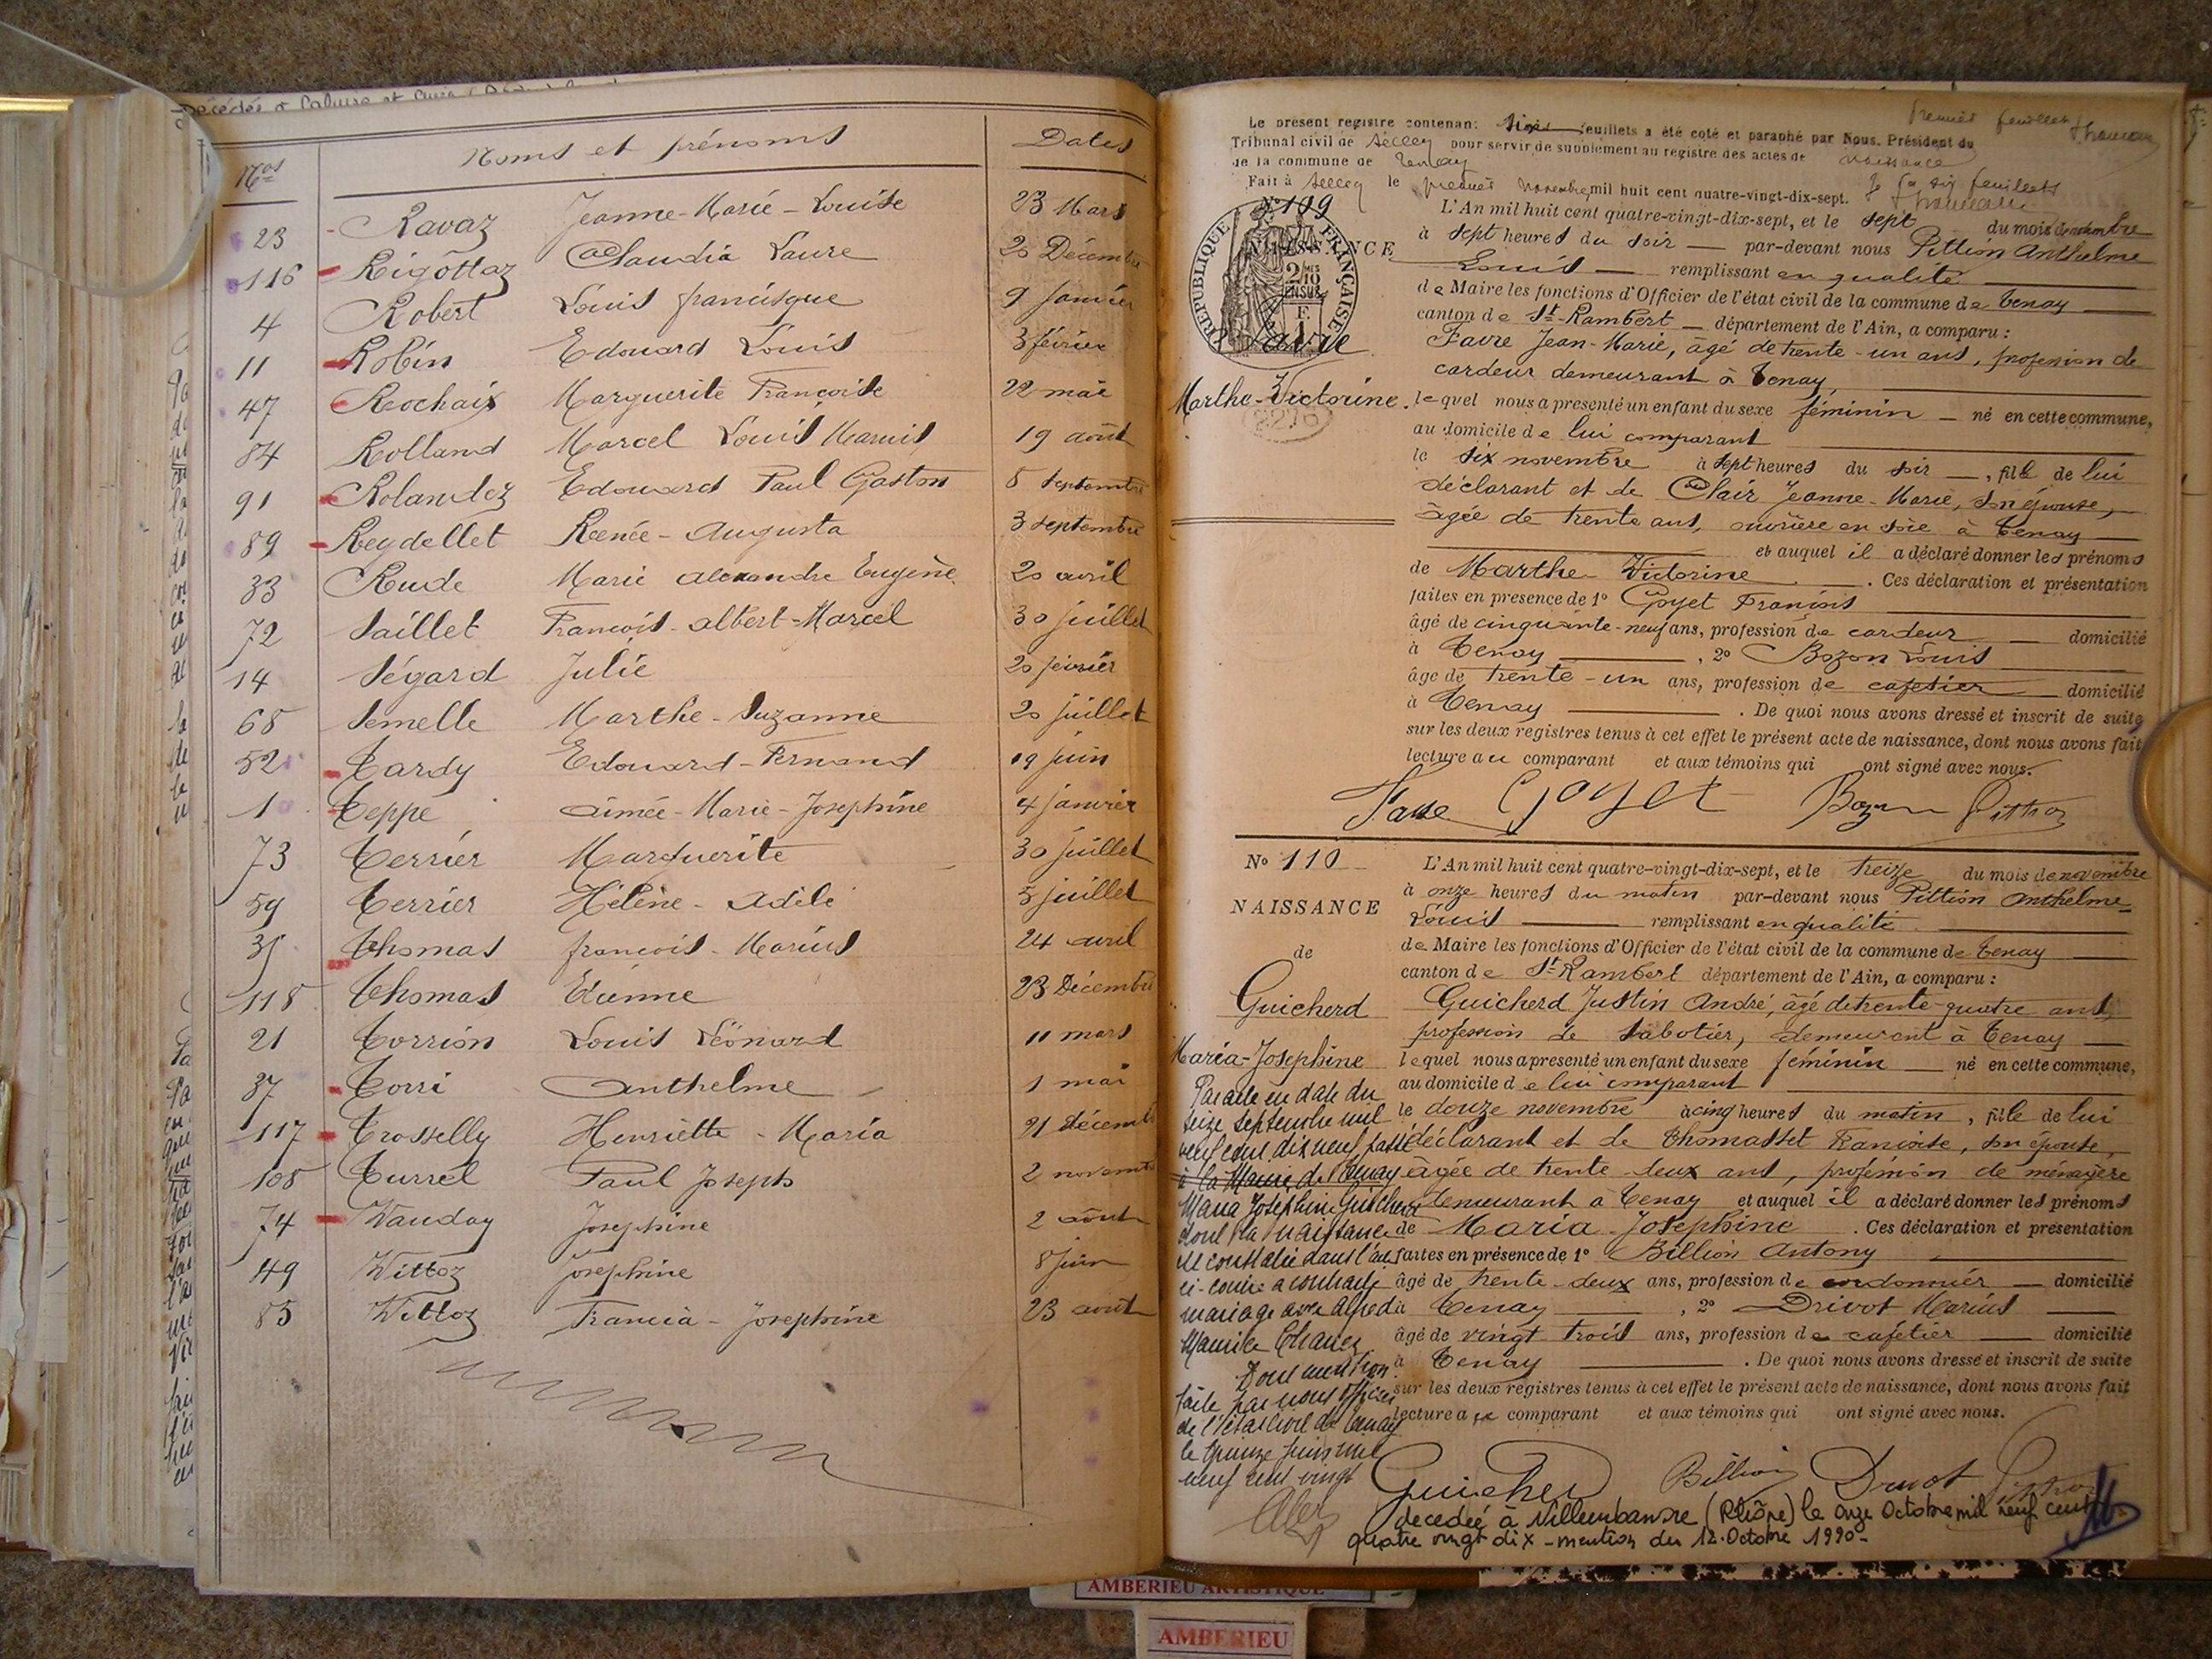 Nos Noms et prénoms Dates
23 Ravaz Jeanne-Marie-Louise 23 Mars
116 Rigottaz Claudia Laure 20 Décembre
4 Robert Louis francisque 9 Janvier
11 Robin Edouard Louis 3 février
47 Rochaix Marguerite Françoise 22 mai
84 Rolland Marcel Louis Marius 19 août
91 Rolandez Edouard Paul Gaston 8 Septembre
89 Reydellet Renée-Augusta 3 septembre
33 Rude Marie alexandre Eugène 20 avril
72 Saillet François-albert-Marcel 30 juillet
14 Ségard Julie 20 février
68 Semelle Marthe-Suzanne 20 juillet
52 Tardy Edouard-Fernand 19 juin
1 Teppe aimée-Marie-Josephine 4 janvier
73 Terrier Marguerite 30 juillet
59 Terrier Hélène-Adèle 5 juillet
35 Thomas françois-Marius 24 avril
118 Thomas Etienne 23 Décembre
21 Torrion Louis Léonard 11 mars
37 Torri Anthelme 1 mai
117 Trosselly Henriette-Maria 21 décembre
108 Turrel Paul Joseph 2 novembre
74 Vauday Josephine 2 août
49 Vittoz Josephine 8 juin
85 Vittoz Francia-Josephine 23 août
premier feuillet
Le présent registre contenant six feuillets a été coté et paraphé par Nous, Président du
Tribunal civil de Belley pour servir de supplément au registre des actes de naissance
de la commune de Tenay
Fait à Belley le premier novembre mil huit cent quatre-vingt-dix-sept.
No 109
NAISSANCE
RÉPUBLIQUE FRANÇAISE
Favre
Marthe-Victorine
2276
L'An mil huit cent quatre-vingt-dix-sept, et le sept du mois de novembre
à sept heures du soir par-devant nous Pittion Anthelme
Louis remplissant en qualité
de Maire les fonctions d'Officier de l'état civil de la commune de Tenay
canton de St-Rambert département de l'Ain, a comparu :
Favre Jean-Marie, âgé de trente-un ans, profession de
cardeur demeurant à Tenay,
lequel nous a présenté un enfant du sexe féminin né en cette commune,
au domicile de lui comparant
le six novembre à sept heures du soir, fille de lui
déclarant et de Clair Jeanne-Marie, son épouse,
âgée de trente ans, ouvrière en soie à Tenay
et auquel il a déclaré donner les prénoms
de Marthe Victorine. Ces déclaration et présentation
faites en présence de 1o Goyet Francois
âgé de cinquante-neuf ans, profession de cardeur domicilié
à Tenay, 2o Bozon Louis
âgé de trente-un ans, profession de cafetier domicilié
à Tenay. De quoi nous avons dressé et inscrit de suite
sur les deux registres tenus à cet effet le présent acte de naissance, dont nous avons fait
lecture au comparant et aux témoins qui ont signé avec nous.
Favre Goyet Bozon Pittion
No 110
NAISSANCE
de
Guicherd
Maria-Josephine
L'An mil huit cent quatre-vingt-dix-sept, et le treize du mois de novembre
à onze heures du matin par-devant nous Pittion Anthelme
Louis remplissant en qualité
de Maire les fonctions d'Officier de l'état civil de la commune de Tenay
canton de St-Rambert département de l'Ain, a comparu :
Guicherd Justin André, âgé de trente-quatre ans,
profession de sabotier, demeurant à Tenay
lequel nous a présenté un enfant du sexe féminin né en cette commune,
au domicile de lui comparant
le douze novembre à cinq heures du matin, fille de lui
déclarant et de Thomasset Francoise, son épouse,
âgée de trente-deux ans, profession de ménagère
demeurant à Tenay et auquel il a déclaré donner les prénoms
de Maria Josephine. Ces déclaration et présentation
faites en présence de 1o Billion Antony
âgé de trente-deux ans, profession de cordonnier domicilié
à Tenay, 2o Drivot Marius
âgé de vingt trois ans, profession de cafetier domicilié
à Tenay. De quoi nous avons dressé et inscrit de suite
sur les deux registres tenus à cet effet le présent acte de naissance, dont nous avons fait
lecture au comparant et aux témoins qui ont signé avec nous.
Par acte en date du
seize septembre mil
neuf cent dix neuf, passé
à la Mairie de Tenay
Maria Josephine Guicherd
dont la naissance
est constatée dans l'acte
ci-contre a contracté
mariage avec Alfred
Maurice
Dont mention
faite par nous officier
de l'état civil de Tenay
le quinze juin mil
neuf cent vingt
Guicherd Billion Drivot Pittion
decedée à Villeurbanne (Rhône) le onze Octobre mil neuf cent
quatre vingt dix - mention du 12 Octobre 1990-
AMBERIEU ARTISTIQUE
AMBERIEU